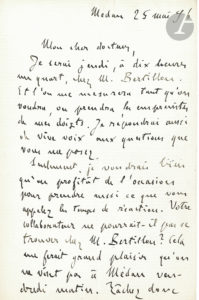 Medan 25 mai 96
Mon cher docteur,
Je serai jeudi, à dix heures
un quart, chez M. Bertillon.
Et l'on me mesurera tant qu'on
voudra, on prendra les empreintes
de mes doigts. Je répondrai aussi
de vive voix aux questions que
vous me posez.
Seulement, je voudrais bien
qu'on profitât de l'occasion
pour prendre aussi ce que vous
appelez le temps de réaction. Votre
collaborateur ne pourrait-il pas se
trouver chez M. Bertillon? Cela
me ferait grand plaisir qu'on
ne vînt pas à Médan ven-
dredi matin. Tâchez donc